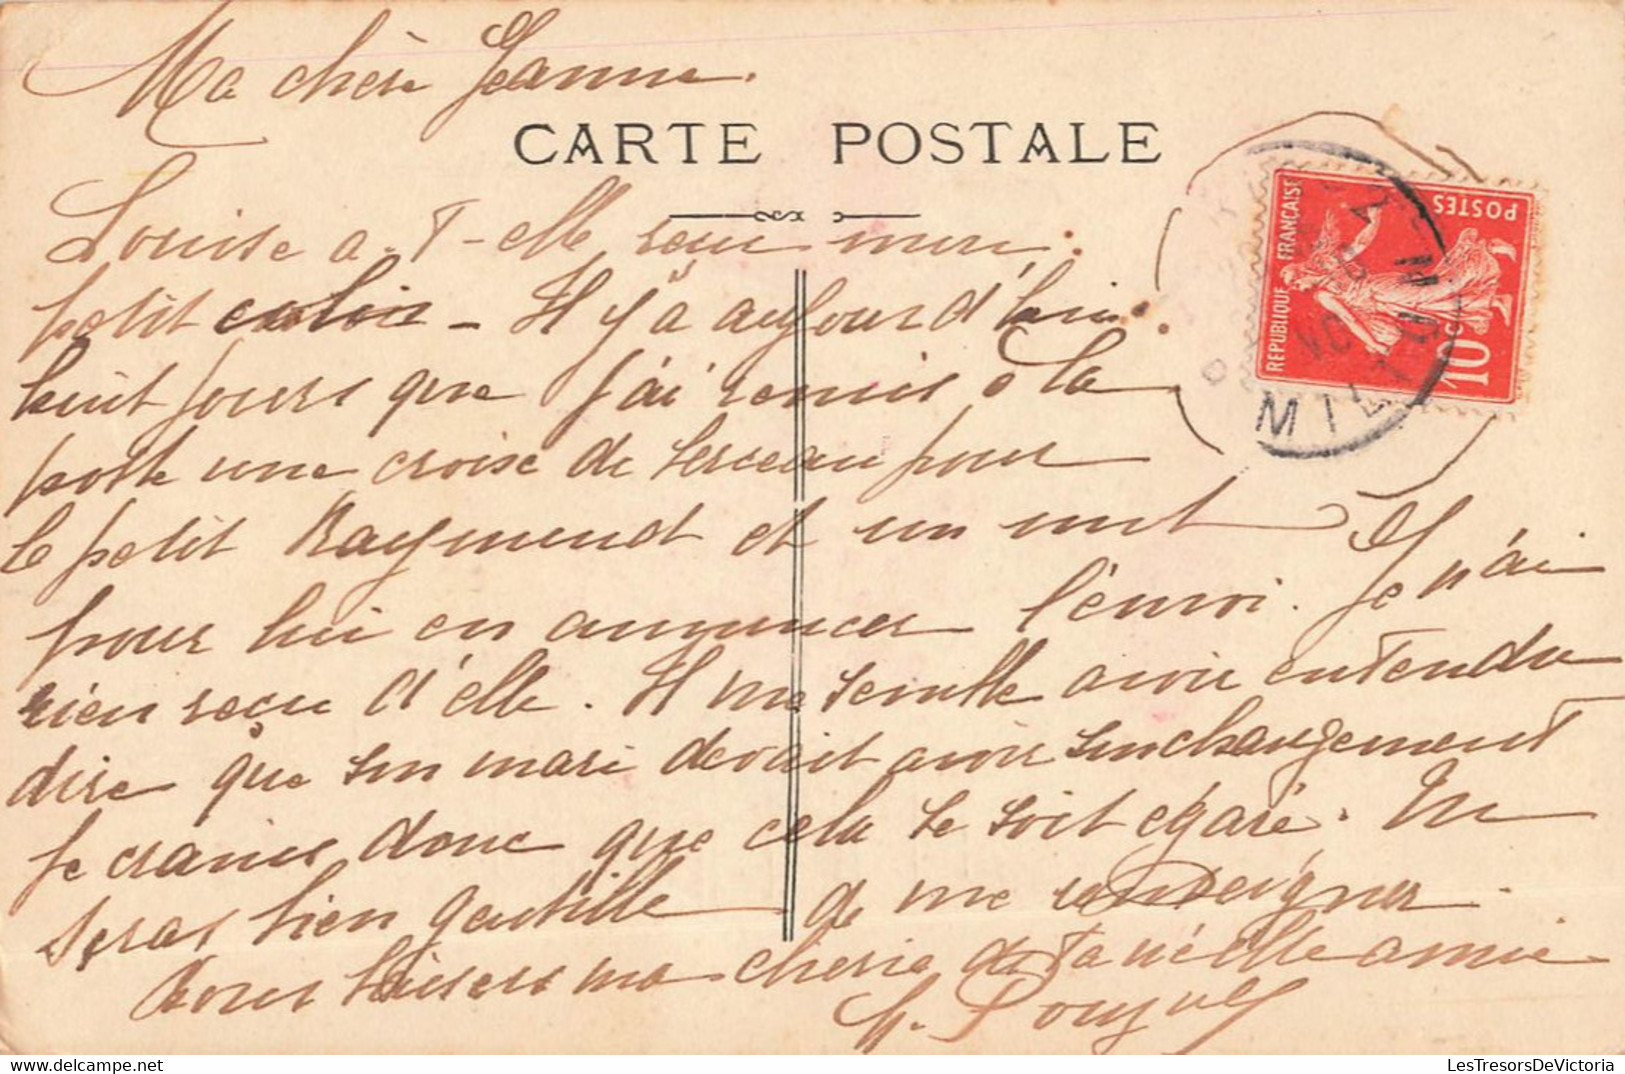 Ma chère Jeanne.
CARTE POSTALE
Louise a-T-elle reçu mon
petit colis - Il y'a aujourd'hui
huit jours que j'ai remis à la
poste une croise de berceau pour
le petit Raymond et un mot
pour lui en annoncer l'envoi. Je n'ai
rien reçu d'elle. Il me semble avoir entendu
dire que son mari devait avoir son changement
Je crains donc que cela se soit égaré. Tu
seras bien gentille de me renseigner
bons baisers ma cherie de Ta vieille amie
REPUBLIQUE FRANÇAISE
POSTES
10c
MIL
LesTresorsDeVictoria